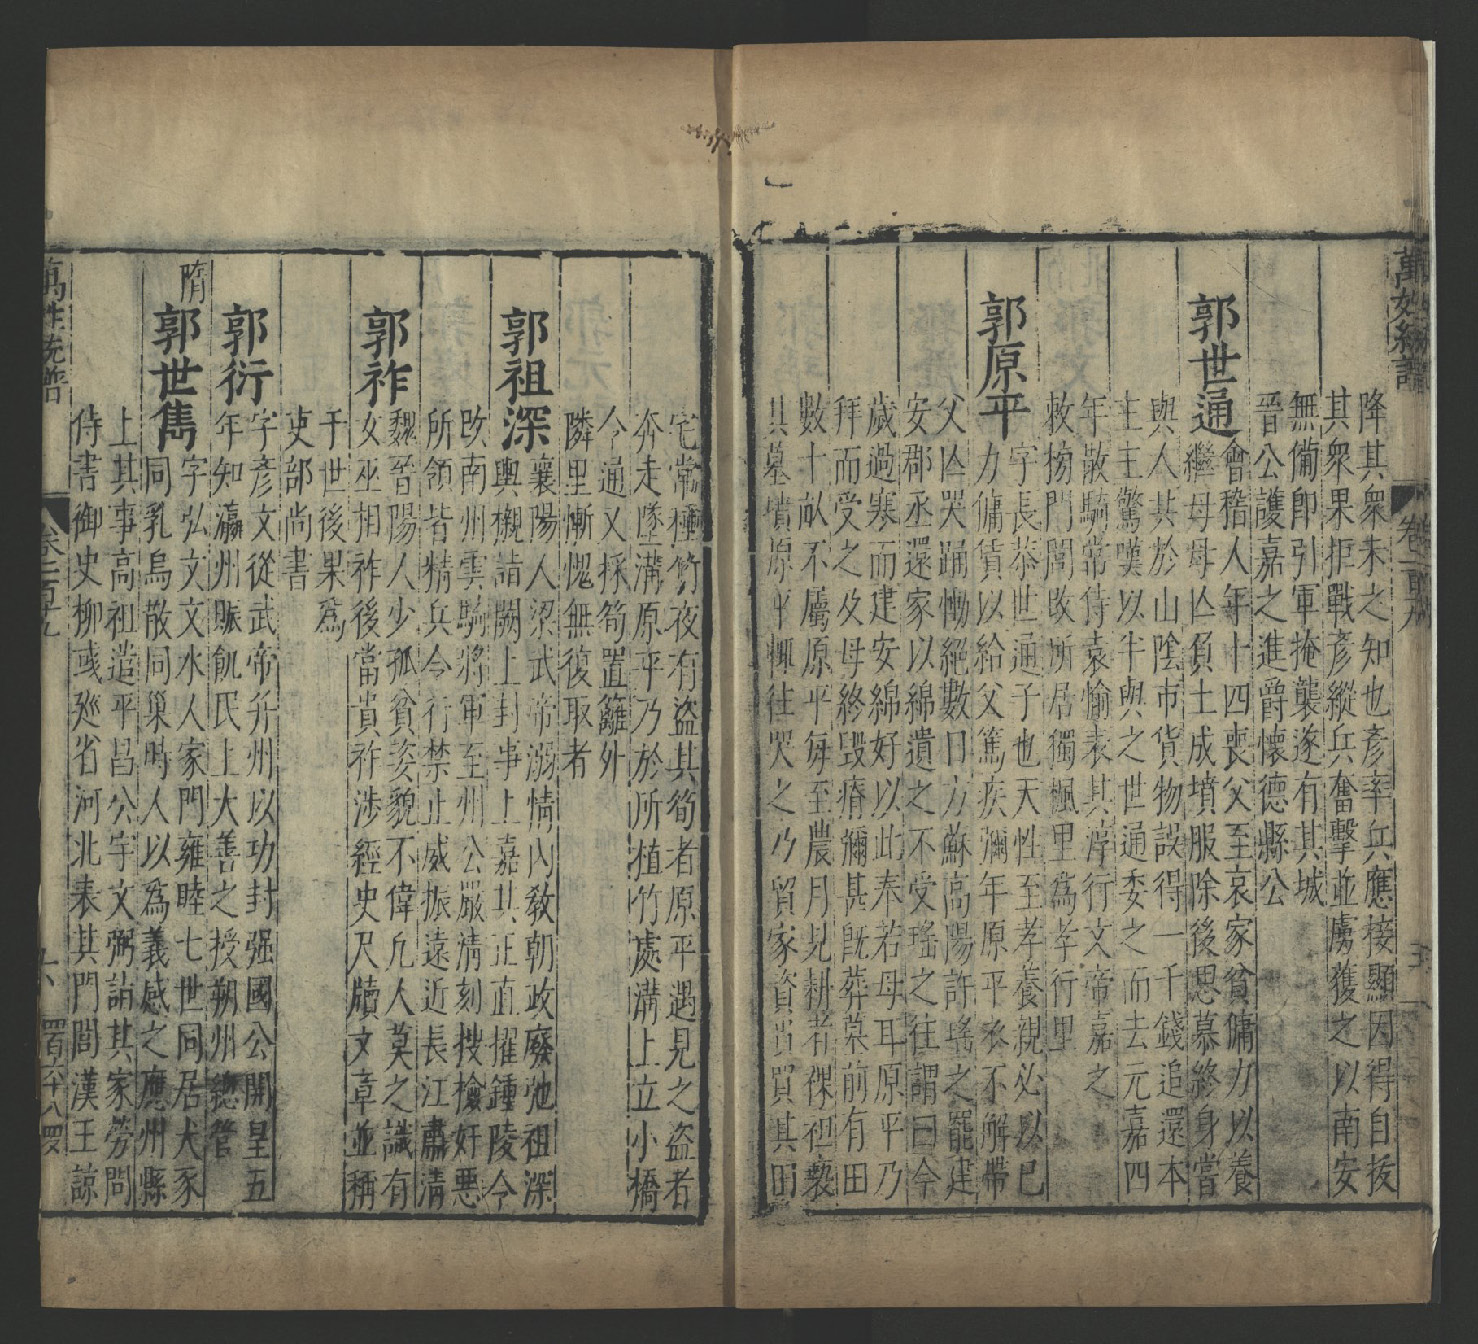 萬姓統譜
卷一百九
降其衆未之知也彥率兵應接顯因得自拔
其衆果拒戰彥縱兵奮擊並虜獲之以南安
無備卽引軍掩襲遂有其城
晉公護嘉之進爵懷德縣公
郭世通
會稽人年十四喪父至哀家貧傭力以養
繼母母亾負土成墳服除後思慕終身嘗
與人共於山陰市貨物誤得一千錢追還本
主主驚嘆以半與之世通委之而去元嘉四
年散騎常侍袁愉表其淳行文帝嘉之
敕榜門閭改所居獨楓里爲孝行里
郭原平
字長恭世通子也天性至孝養親必以己
力傭賃以給父篤疾彌年原平衣不解帶
父亾哭踊慟絕數日方蘇高陽許瑤之罷建
安郡丞還家以綿遺之不受瑤之往謂曰今
歲過寒而建安綿好以此奉若母耳原平乃
拜而受之及母終毀瘠彌甚旣葬墓前有田
數十畝不屬原平每至農月見耕者裸袒褻
其墓墳原平輒往哭之乃貿家資買其田
宅常種竹夜有盜其筍者原平遇見之盜者
奔走墜溝原平乃於所植竹處溝上立小橋
令通又採筍置籬外
隣里慚愧無復取者
郭祖深
襄陽人梁武帝溺情內敎朝政廢弛祖深
輿櫬詣闕上封事上嘉其正直擢鍾陵令
改南州雲騎將軍至州公嚴清刻搜檢奸惡
所領皆精兵令行禁止威振遠近長江肅清
郭祚
魏晉陽人少孤貧姿貌不偉凢人莫之識有
女巫相祚後當貴祚涉經史尺牘文章並稱
于世後果爲
吏部尚書
郭衍
字彥文從武帝弁州以功封强國公開皇五
年知瀛州賑飢民上大善之授朔州總管
隋
郭世雋
字弘文文水人家門雍睦七世同居犬豕
同乳烏散同巢時人以爲義感之應州縣
上其事高祖造平昌公宇文㢸詣其家勞問
侍書御史柳彧廵省河北表其門閭漢王諒
萬姓統譜
卷一百九
四百六十八